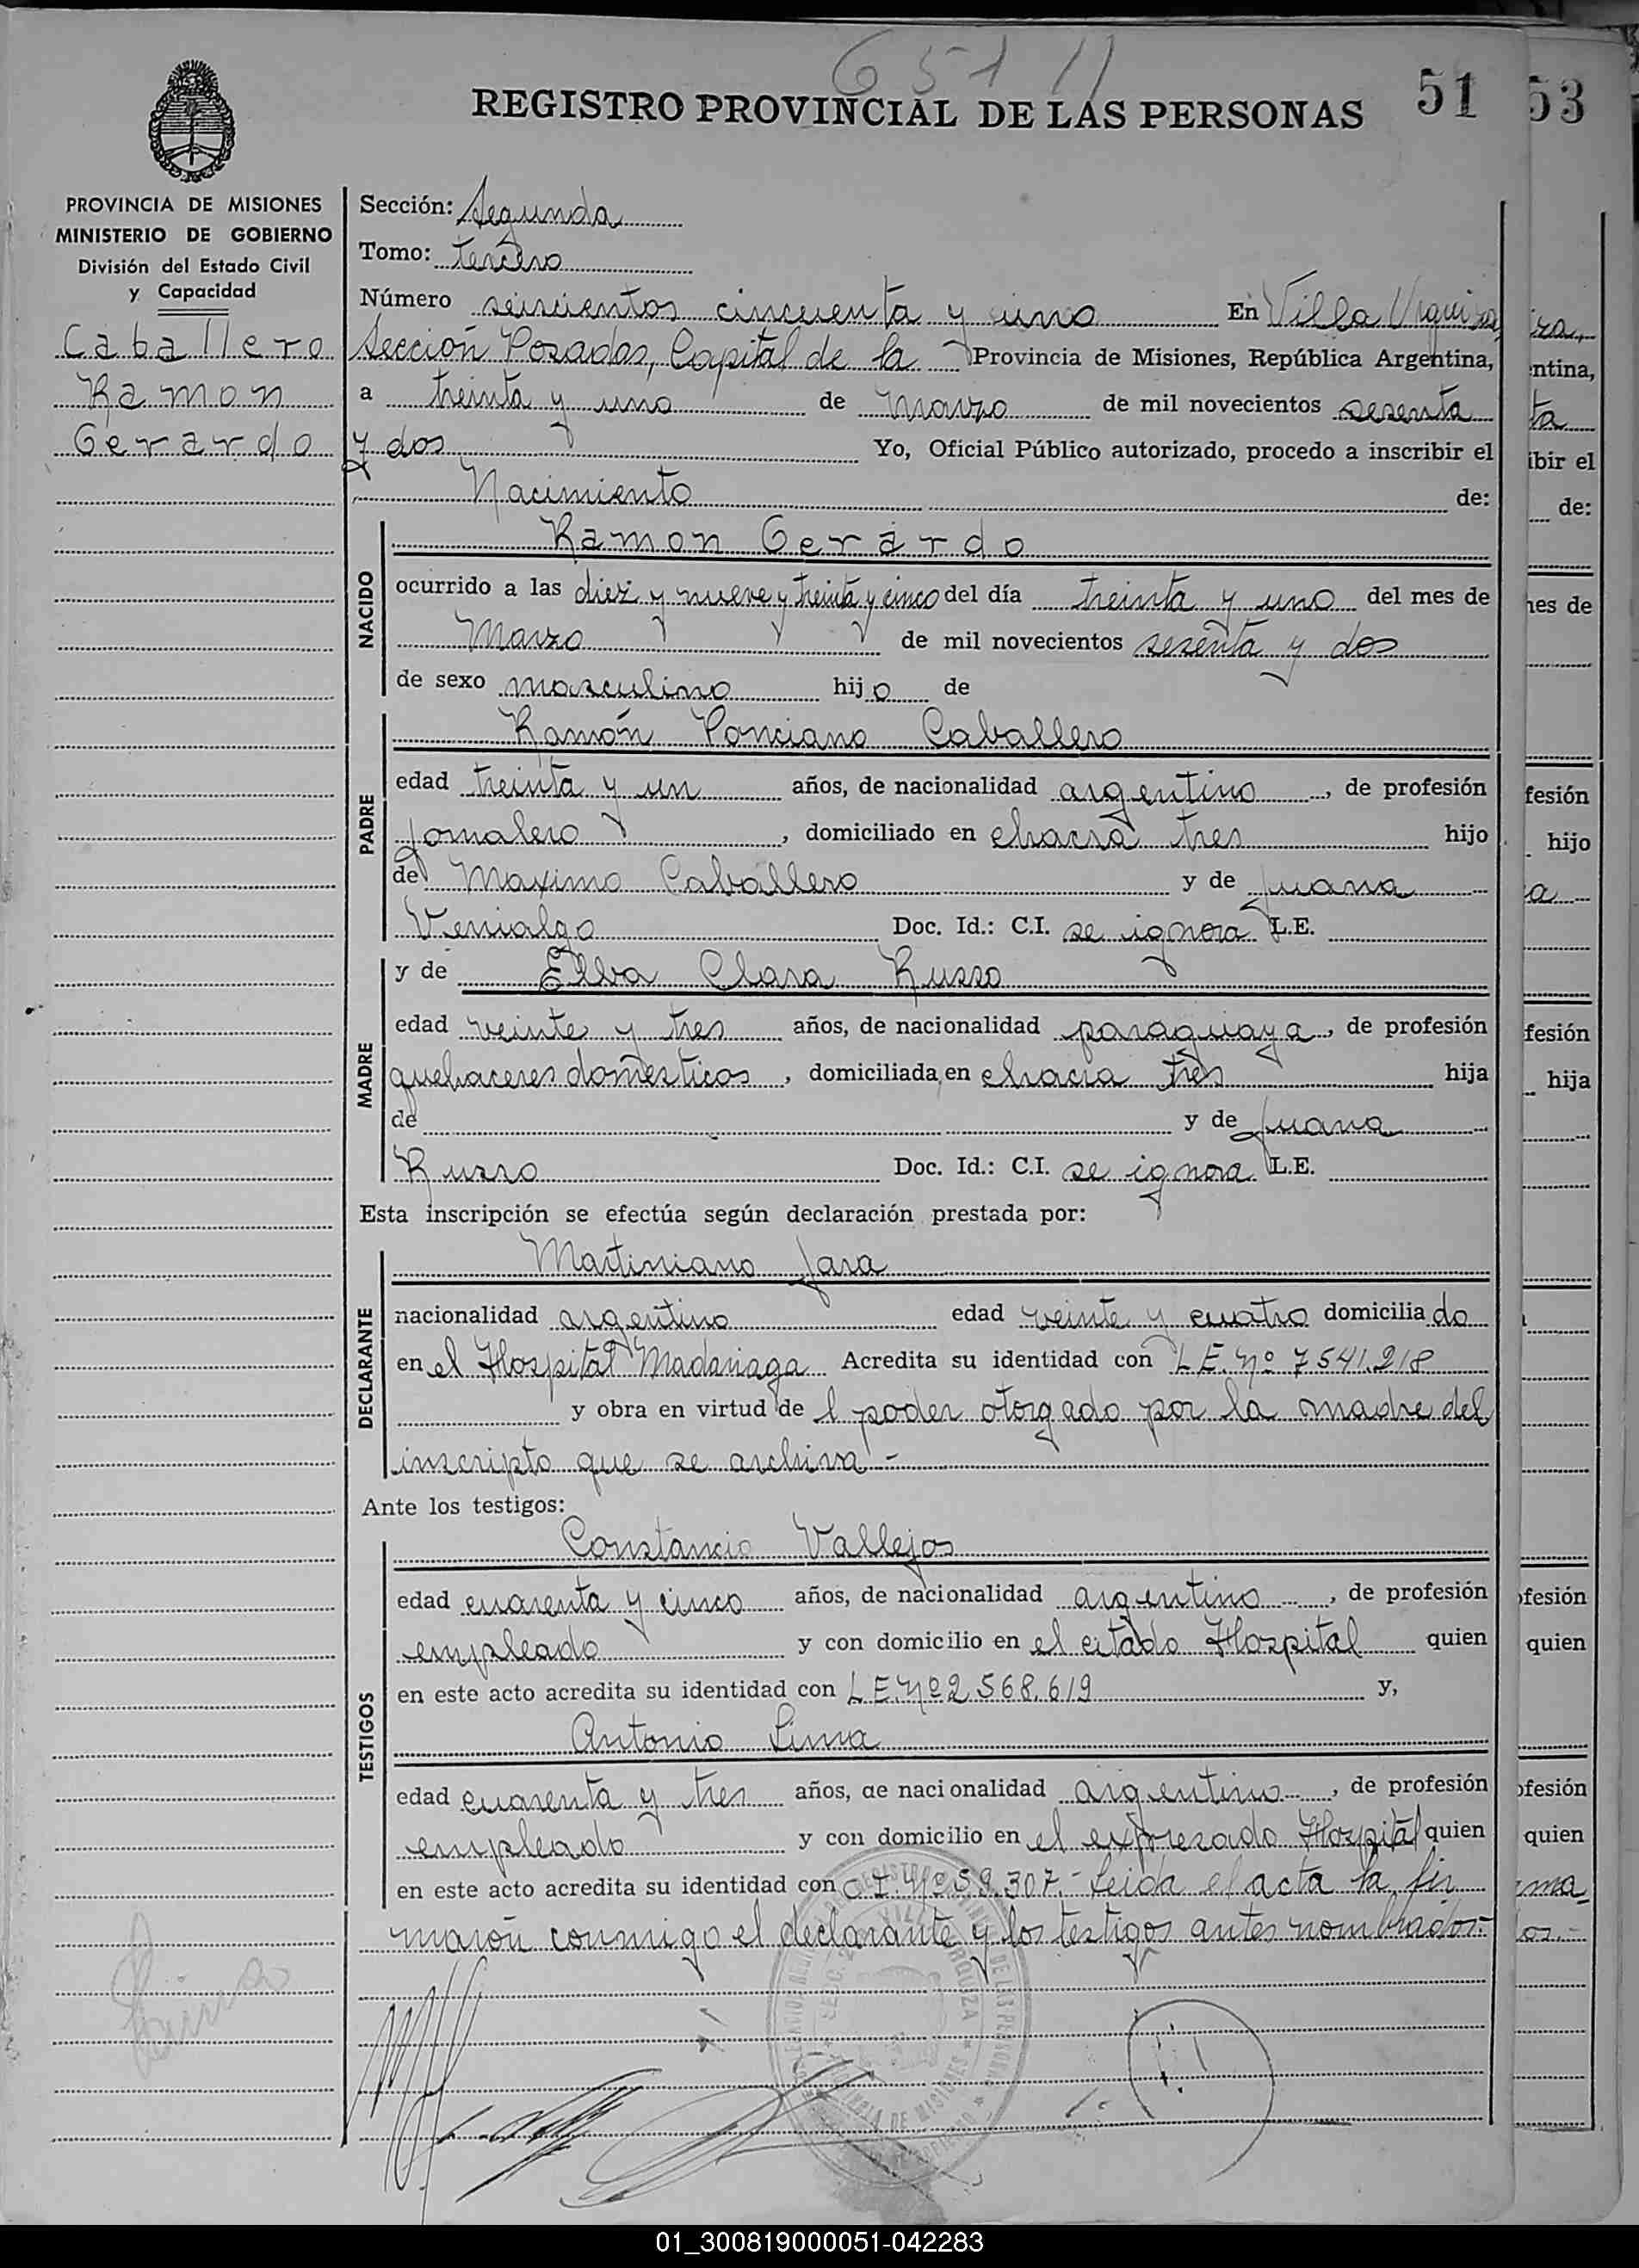 651
REGISTRO PROVINCIAL DE LAS PERSONAS 51 53
PROVINCIA DE MISIONES
MINISTERIO DE GOBIERNO
División del Estado Civil
y Capacidad
Caballero
Ramon
Gerardo
Sección: Segunda
Tomo: tercero
Número seiscientos cincuenta y uno En Villa Urquiza,
Sección Posadas, Capital de la Provincia de Misiones, República Argentina,
a treinta y uno de Marzo de mil novecientos sesenta
y dos Yo, Oficial Público autorizado, procedo a inscribir el
Nacimiento de:
NACIDO
Ramon Gerardo
ocurrido a las diez y nueve y treinta y cinco del día treinta y uno del mes de
Marzo de mil novecientos sesenta y dos
de sexo masculino hijo de
PADRE
Ramón Ponciano Caballero
edad treinta y un años, de nacionalidad argentino, de profesión
jornalero, domiciliado en chacra tres hijo
de Maximo Caballero y de Juana
Venialgo Doc. Id.: C.I. se ignora L.E.
MADRE
y de Elva Clara Russo
edad veinte y tres años, de nacionalidad paraguaya, de profesión
quehaceres domésticos, domiciliada en chacra tres hija
de y de Juana
Russo Doc. Id.: C.I. se ignora L.E.
Esta inscripción se efectúa según declaración prestada por:
DECLARANTE
Martiniano Jara
nacionalidad argentino edad veinte y cuatro domiciliado
en el Hospital Madariaga Acredita su identidad con L.E. Nº 7541.218
y obra en virtud del poder otorgado por la madre del
inscripto que se archiva.-
Ante los testigos:
TESTIGOS
Constancio Vallejos
edad cuarenta y cinco años, de nacionalidad argentino, de profesión
empleado y con domicilio en el citado Hospital quien
en este acto acredita su identidad con L.E. Nº 2.568.619 y,
Antonio Lima
edad cuarenta y tres años, de nacionalidad argentino, de profesión
empleado y con domicilio en el expresado Hospital quien
en este acto acredita su identidad con C.I. Nº 59.307.- Leida el acta la fir
maron conmigo el declarante y los testigos antes nombrados.-
01_300819000051-042283